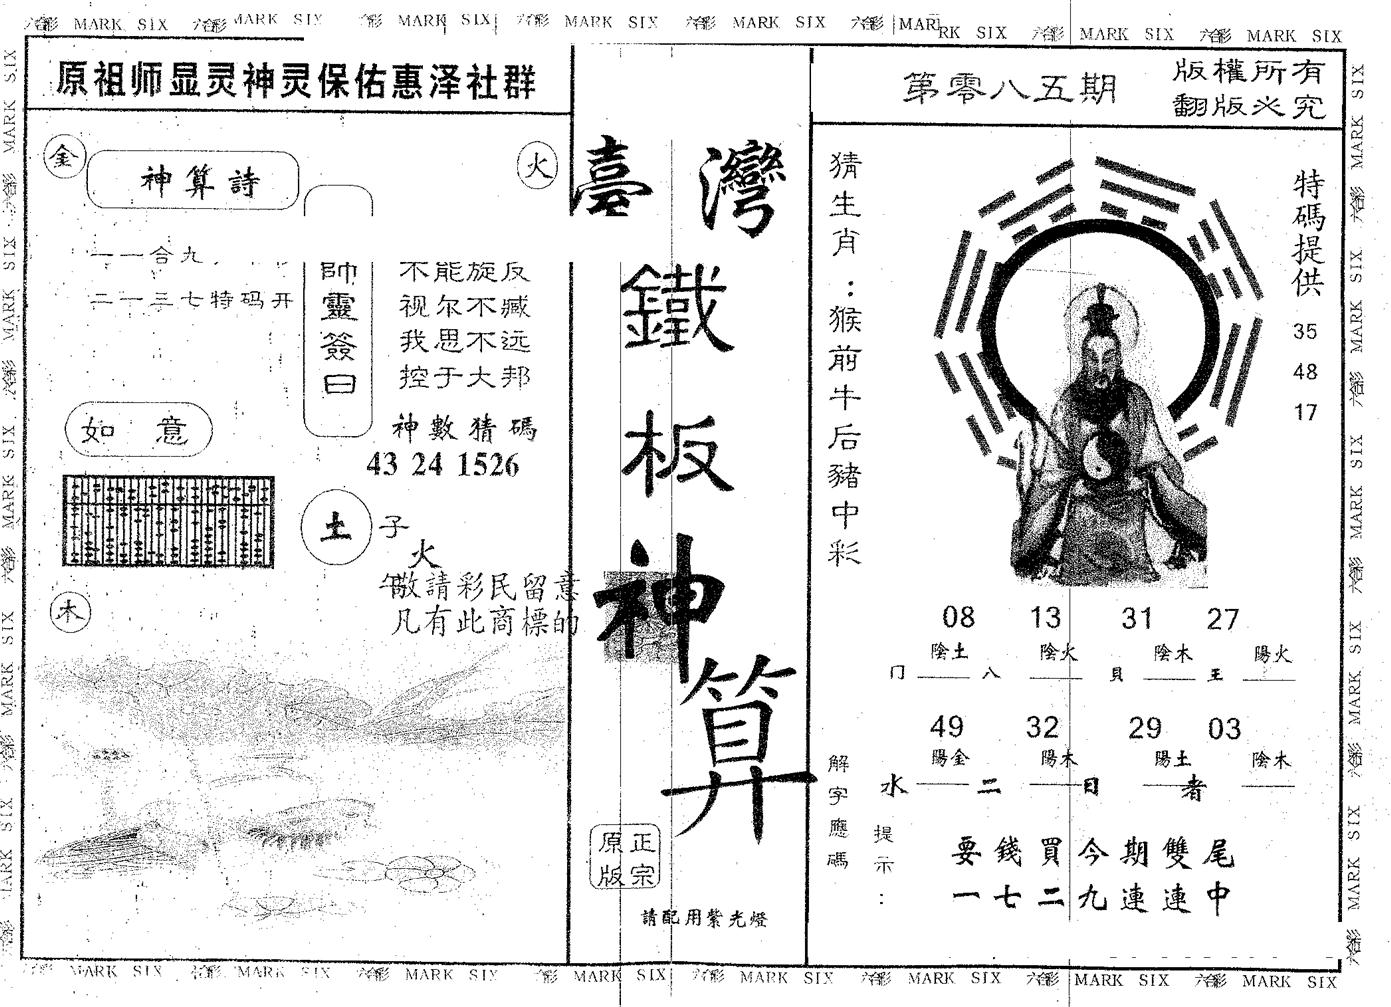 六合彩 MARK SIX 六合彩 MARK SIX 六合彩 MARK SIX 六合彩 MARK SIX 六合彩 MARK SIX 六合彩 MARK SIX 六合彩 MARK SIX
原祖师显灵神灵保佑惠泽社群
金
神算詩
火
一一合九
二一三七特码开
帥靈簽曰
不能旋反
视尔不臧
我思不远
控于大邦
神數猜碼
43 24 1526
如 意
土
子
火
午
木
敬請彩民留意
凡有此商標的
臺灣
鐵
板
神
算
正宗
原版
請配用紫光燈
第零八五期
版權所有
翻版必究
猜生肖：猴前牛后豬中彩
特碼提供
35
48
17
08 13 31 27
陰土 陰火 陰木 陽火
门 八 貝 王
49 32 29 03
陽金 陽木 陽土 陰木
水 二 日 者
解字應碼
提示：
要錢買今期雙尾
一七二九連連中
六合彩 MARK SIX 六合彩 MARK SIX 六合彩 MARK SIX 六合彩 MARK SIX 六合彩 MARK SIX 六合彩 MARK SIX 六合彩 MARK SIX 六合彩 MARK SIX